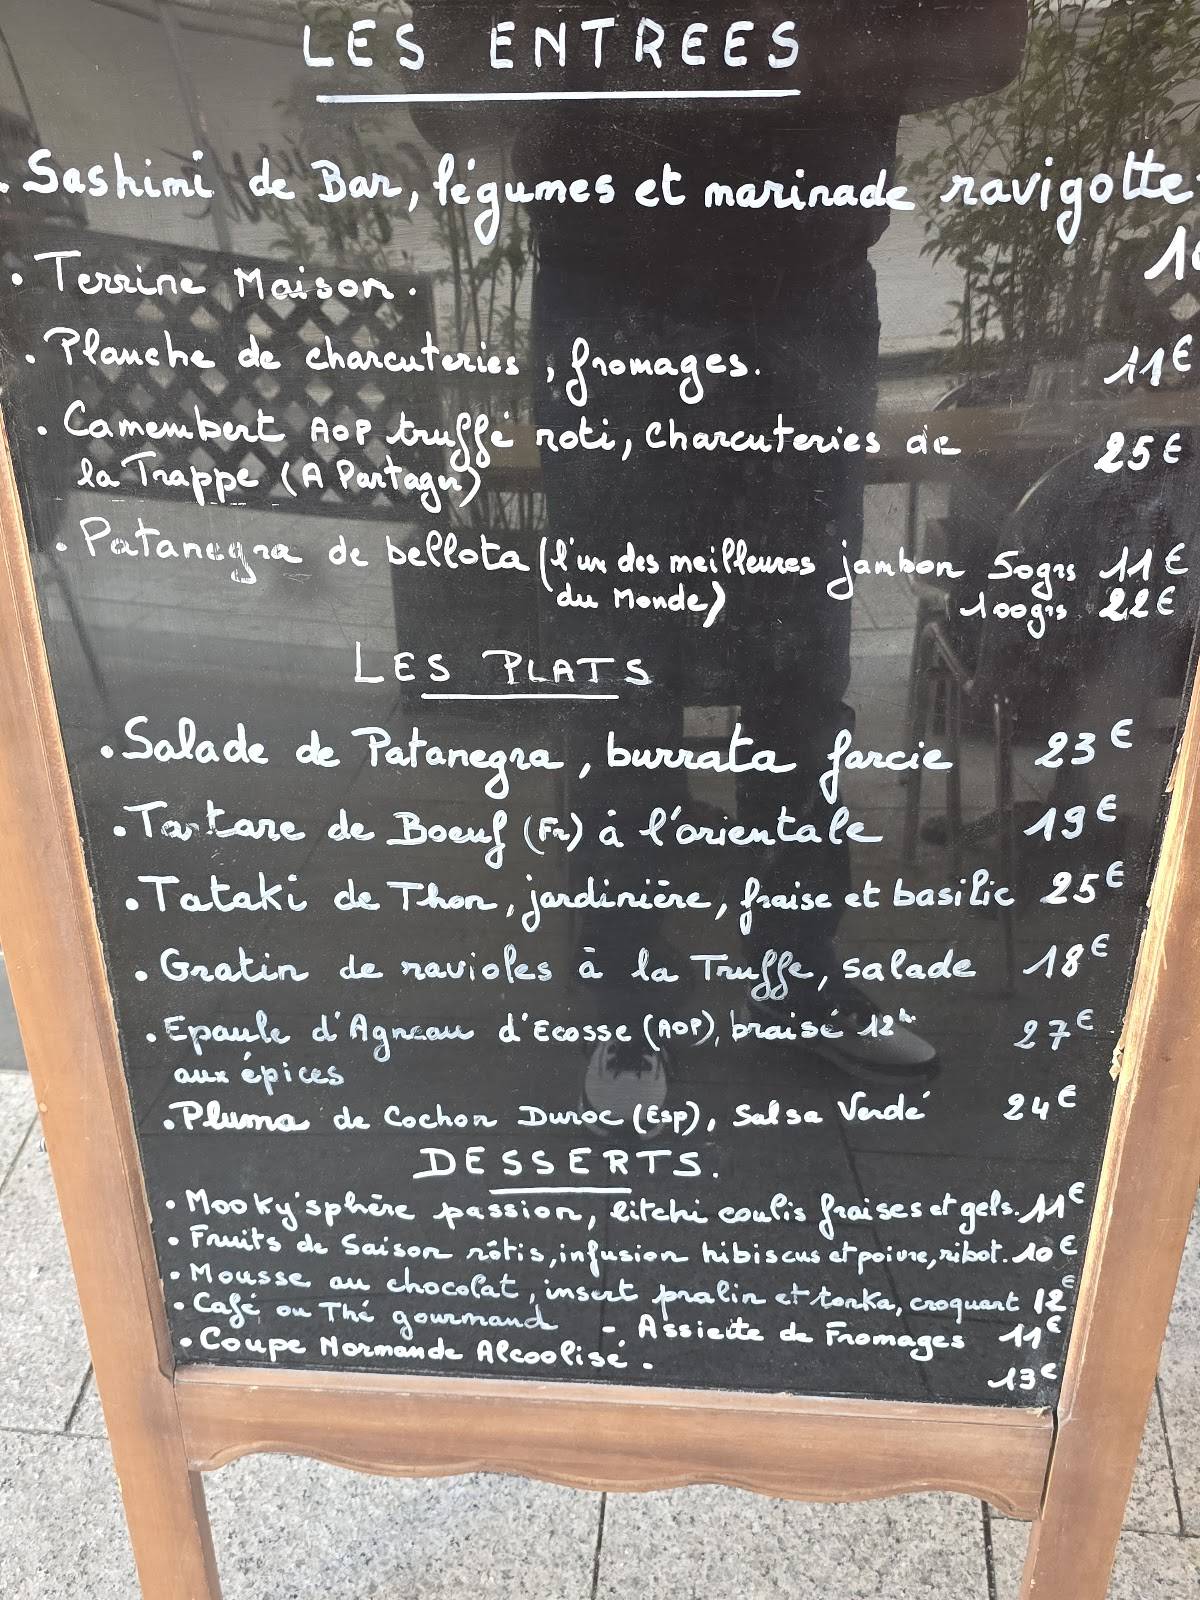 LES ENTREES
. Sashimi de Bar, légumes et marinade ravigotte
. Terrine Maison.
. Planche de charcuteries, fromages. 11€
. Camembert AOP truffé roti, charcuteries de 25€
la Trappe (A Partager)
. Patanegra de bellota (l'un des meilleures jambon 50grs 11€
du Monde) 100grs 22€
LES PLATS
. Salade de Patanegra, burrata farcie 23€
. Tartare de Boeuf (Fr) à l'orientale 19€
. Tataki de Thon, jardinière, fraise et basilic 25€
. Gratin de ravioles à la Truffe, salade 18€
. Epaule d'Agneau d'Ecosse (AOP), braisé 12h. 27€
aux épices
. Pluma de Cochon Duroc (Esp), Salsa Verdé 24€
DESSERTS.
. Mooky'sphère passion, litchi coulis fraises et gels. 11€
. Fruits de Saison rôtis, infusion hibiscus et poivre, ribot. 10€
. Mousse au chocolat, insert pralin et tonka, croquant 12€
. Café ou Thé gourmand -. Assiette de Fromages 11€
. Coupe Normande Alcoolisé. 13€